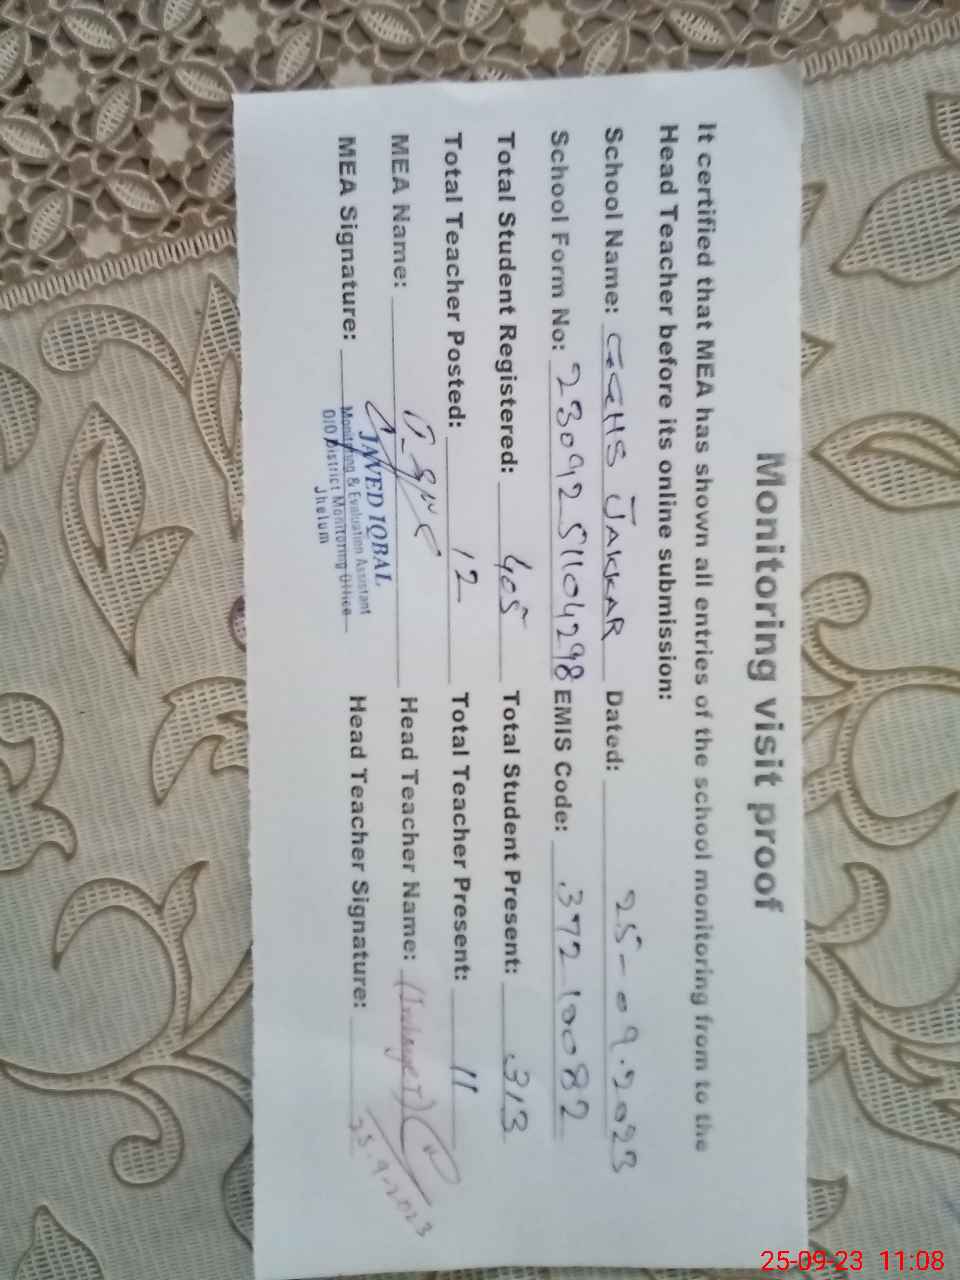 Monitoring visit proof
It certified that MEA has shown all entries of the school monitoring from to the
Head Teacher before its online submission:
School Name: GGHS JAKKAR Dated: 25-09-2023
School Form No: 2309251104298 EMIS Code: 37210082
Total Student Registered: 405 Total Student Present: 313
Total Teacher Posted: 12 Total Teacher Present: 11
MEA Name: Head Teacher Name:
MEA Signature: Head Teacher Signature: 25.9.2023
JAVED IQBAL
Monitoring & Evaluation Assistant
O/O District Monitoring Office
Jhelum
25-09-23 11:08